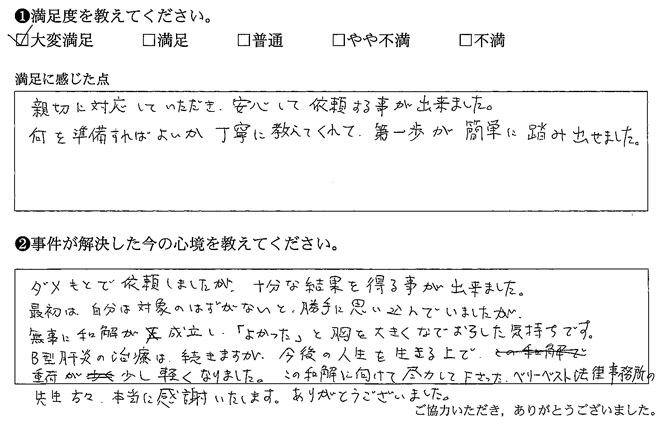 ❶満足度を教えてください。
☑大変満足 □満足 □普通 □やや不満 □不満
満足に感じた点
親切に対応していただき、安心して依頼する事が出来ました。
何を準備すればよいか丁寧に教えてくれて、第一歩が簡単に踏み出せました。
❷事件が解決した今の心境を教えてください。
ダメもとで依頼しましたが、十分な結果を得る事が出来ました。
最初は自分は対象のはずがないと、勝手に思い込んでいましたが、
無事に和解が成立し、「よかった」と胸を大きくなでおろした気持ちです。
B型肝炎の治療は、続きますが、今後の人生を生きる上で、この和解で
重荷が少し軽くなりました。この和解に向けて尽力して下さった、ベリーベスト法律事務所の
先生方々、本当に感謝いたします。ありがとうございました。
ご協力いただき，ありがとうございました。